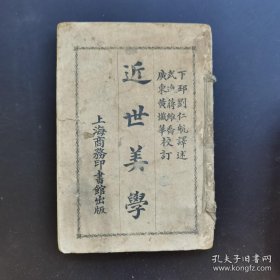 下邳劉仁航譯述
武進蔣維喬
廣東黄懺華校訂
近世美學
上海商務印書館出版
孔夫子旧书网